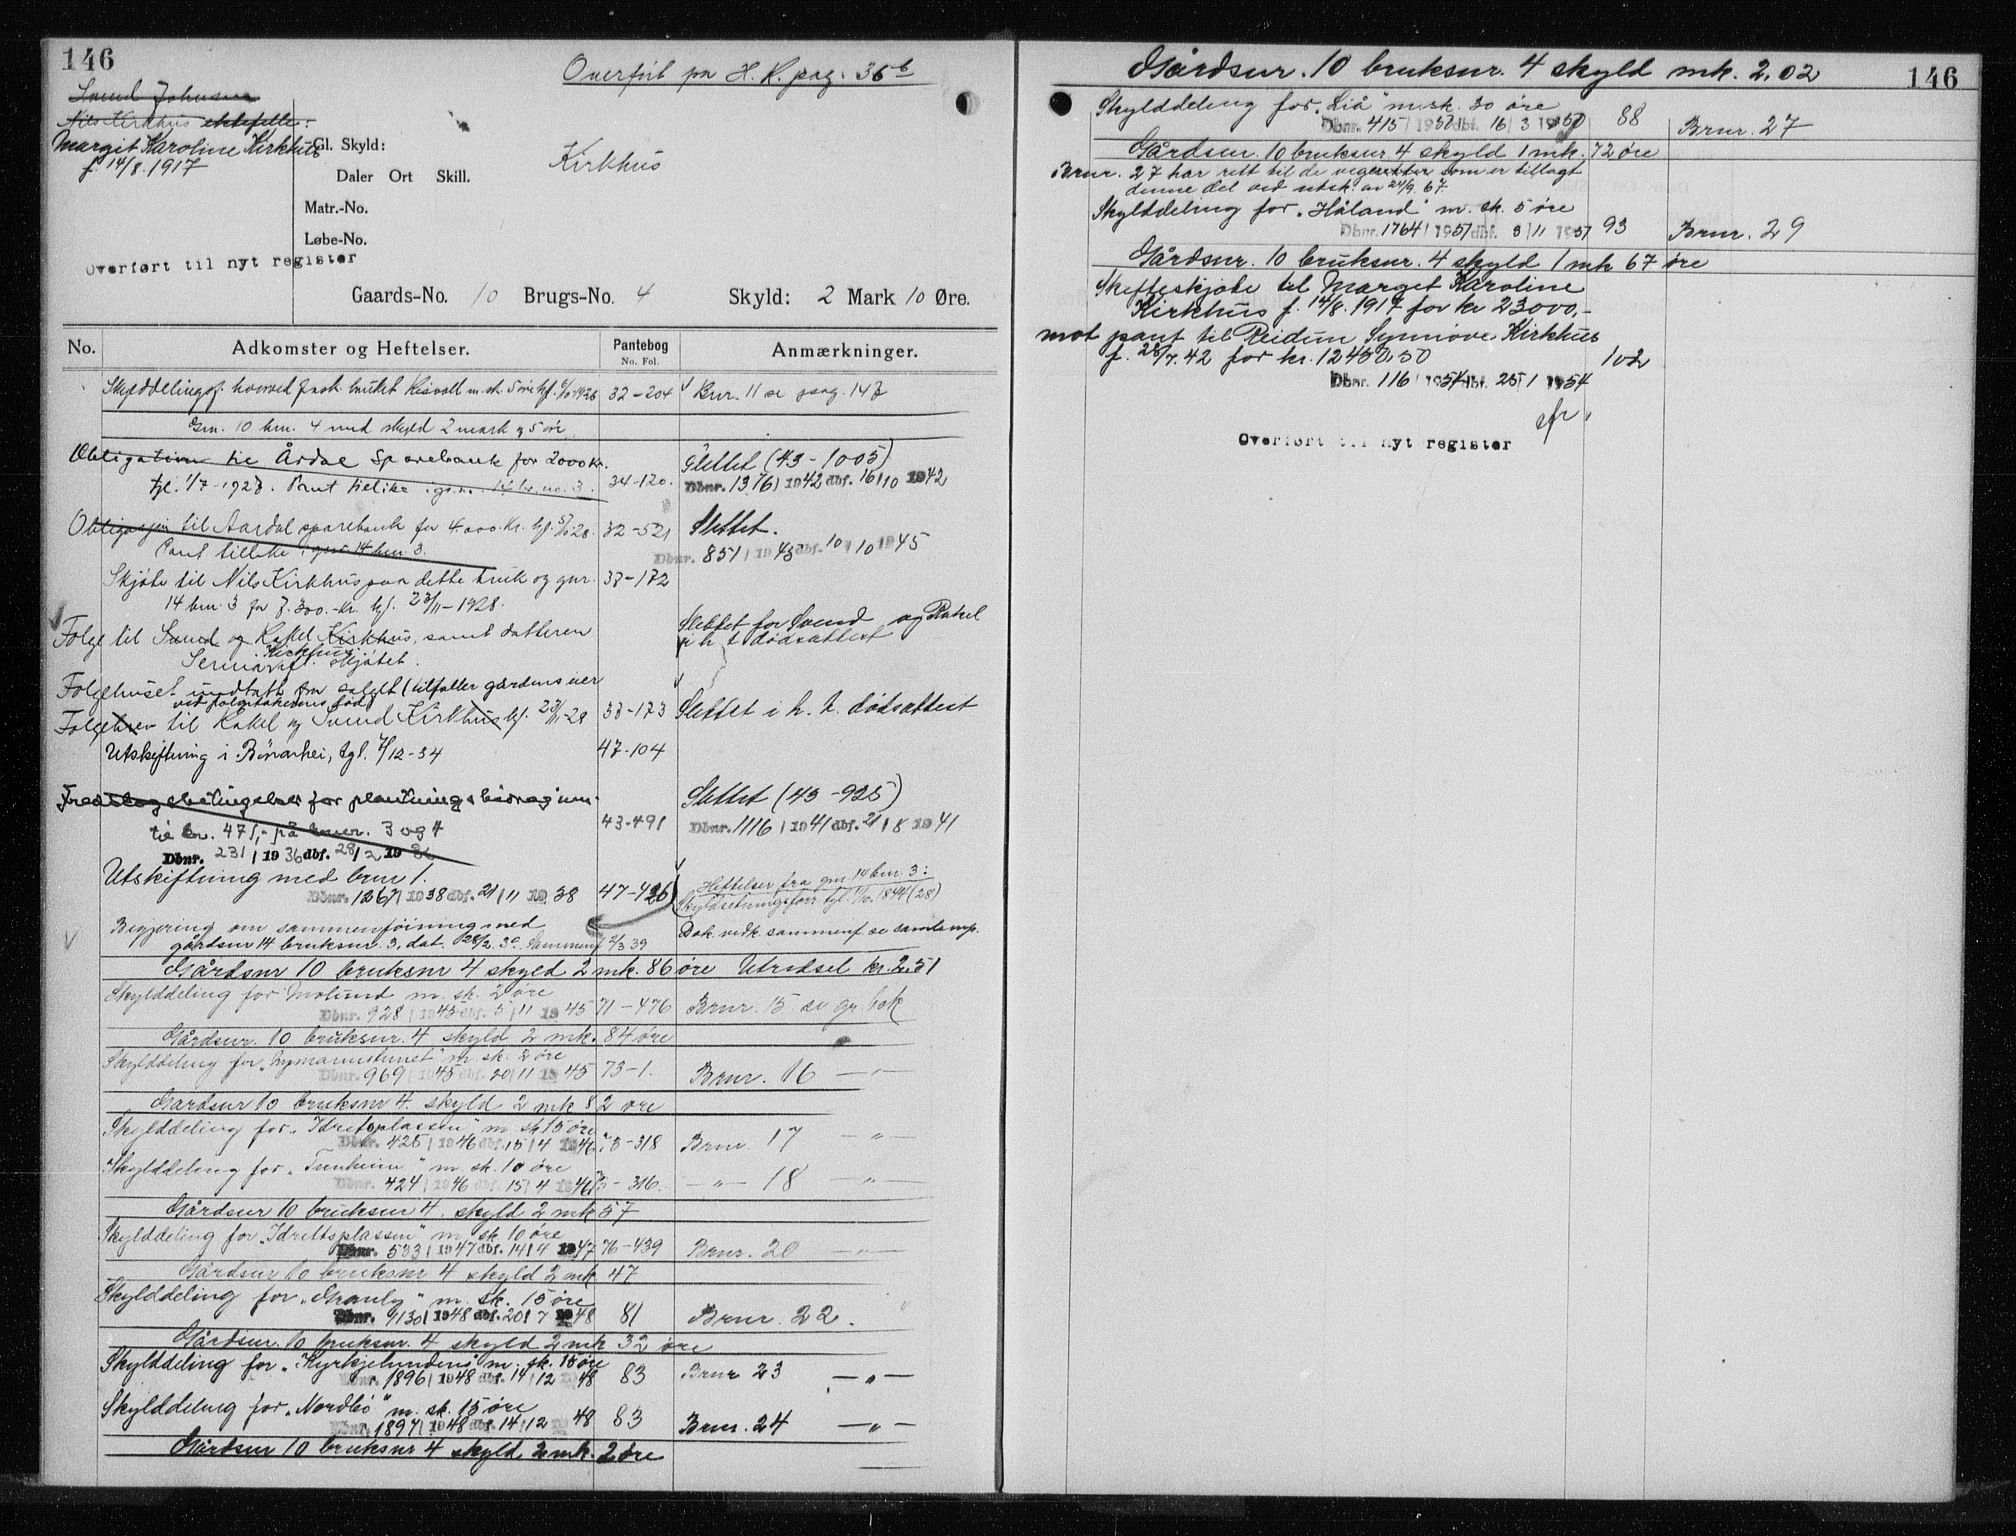 146
Overført pa H. R. pag. 36 b
Svend Johnsen
Nils Kirkhus ektefelle:
Margit Karoline Kirkhus
f. 14/8.1917
Gl. Skyld:
Daler Ort Skill.
Matr.-No.
Løbe-No.
Kirkhus
Overført til nyt register
Gaards-No. 10 Brugs-No. 4 Skyld: 2 Mark 10 Øre.
No. Adkomster og Heftelser. Pantebog No. Fol. Anmærkninger.
Skylddelingsf. hvorved frask. bruket m. sk. 5 øre 1926 32-204 Bnr. 11 se pag. 147
Gn. 10 bnr. 4 med skyld 2 mark og 5 øre
Obligation til Årdal Sparebank for 2000 kr. Slettet (43-1005)
tgl. 1/7-1927. Pant tillike i g.no. 14 br. no. 3. 34-120. Dbnr. 1376 1942 dbf. 16/10 1942
Obligasjon til Aardal sparebank for 4000 Kr. 28. 32-521 Slettet.
Pant tillike i gnr 14 bnr. 3. Dbnr. 851 1943 dbf. 10/10 1945
Skjøte til Nils Kirkhus paa dette bruk og gnr. 33-172
14 bnr. 3 for 7.300.- Kr. tgl. 23/11-1928.
Folge til Svend og Rakel Kirkhus, samt datteren Slettet for Svend og Rakel
Kirkhus skjøtet. i h. t. dødsattest
Folgehuset undtatt fra salget (tilfaller gårdens eier
ved folgetakernes død)
Folgebrev til Rakel og Svend Kirkhus tgl. 23/11-28 33-173 Slettet i h. t. dødsattest
Utskiftning i Bönarhei, tgl. 7/12-34 47-104
for plantningsbidrag inn- Slettet (43-925)
til kr. 471,- på bruer. 3 og 4 43-491 Dbnr. 1116 1941 dbf. 21/8 1941
Dbnr. 231 1936 dbf. 28/2 1936
Utskiftning med brnr 1. Heftelser fra gnr. 14 bnr. 3:
Dbnr. 1267 1938 dbf. 21/11 1938 47-426 Skyldsetningsforr. tgl. 1844 (28)
Begjering om sammenføining med Dok. vedk. sammenf. se samlemp.
gårdsnr 14 bruksnr. 3, dat. 28/2. 39. Sammenf 2/3 39
Gårdsnr 10 bruksnr 4 skyld 2 mk. 86 øre Utredsel kr. 2.51
Skylddeling for Molund m. sk. 2 øre
Dbnr. 928 1945 dbf. 5/11 1945 71-476 Brnr. 15 se gr. bok
Gårdsnr. 10 bruksnr. 4 skyld 2 mk. 84 øre
Skylddeling for „Nymannstunet" m. sk. 2 øre
Dbnr. 969 1945 dbf. 20/11 1945 73-1. Brnr. 16 —„—
Gardsnr 10 bruksnr 4. skyld 2 mk 82 øre
Skylddeling for „Idretsplassen" m sk 15 øre
Dbnr. 425 1946 dbf. 15/4 1946 -318 Brnr 17 —„—
Skylddeling for „Tunheim" m. sk. 10 øre
Dbnr. 424 1946 15/4 1946 -316. —„— 18 —„—
Gårdsnr 10 bruksnr 4. skyld 2 mk 57
Skylddeling for „Idrettsplassen" m. sk 10 øre
Dbnr. 533 1947 dbf. 14/4 1947 76-439 Brnr. 20 —„—
Gårdsnr 10 bruksnr 4 skyld 2 mk 47
Skylddeling for „Granly" m. sk. 15 øre
Dbnr. 9130 1948 dbf. 20/7 1948 81 Brnr. 22.
Gårdsnr. 10 bruksnr. 4 skyld 2 mk 32 øre
Skylddeling for „Kyrkjelunden" m. sk. 15 øre
Dbnr. 1896 1948 dbf. 14/12 48 83 Brnr 23 —„—
Skylddeling for „Nordbö" m. sk. 15 øre
Dbnr. 1897 1948 dbf. 14/12 48 83 Brnr. 24 —„—
Gårdsnr 10 bruksnr 4 skyld 2 mk. 2 øre
Gårdsnr. 10 bruksnr. 4 skyld mk. 2,02 146
Skylddeling for „Liå" m. sk. 30 øre
Dbnr. 415 1950 dbf. 16/3 1950 88 Brnr. 27
Gårdsnr. 10 bruksnr 4 skyld 1 mk. 72 øre
Brnr. 27 har rett til de vegeretter som er tillagt
denne del ved utsk. av 24/9. 67.
Skylddeling for „Håland" m. sk. 5 øre
Dbnr. 1764 1951 dbf. 3/11 1951 93 Brnr. 29
Gårdsnr. 10 bruksnr. 4 skyld 1 mk 67 øre
Skifteskjøte til Marget Karoline
Kirkhus f. 14/8.1917 for kr 23000.-
mot pant til Reidun Synnøve Kirkhus
f. 28/7.42 for kr. 12450,50 102
Dbnr. 116 1954 dbf. 25/1 1954
Overført til nyt register